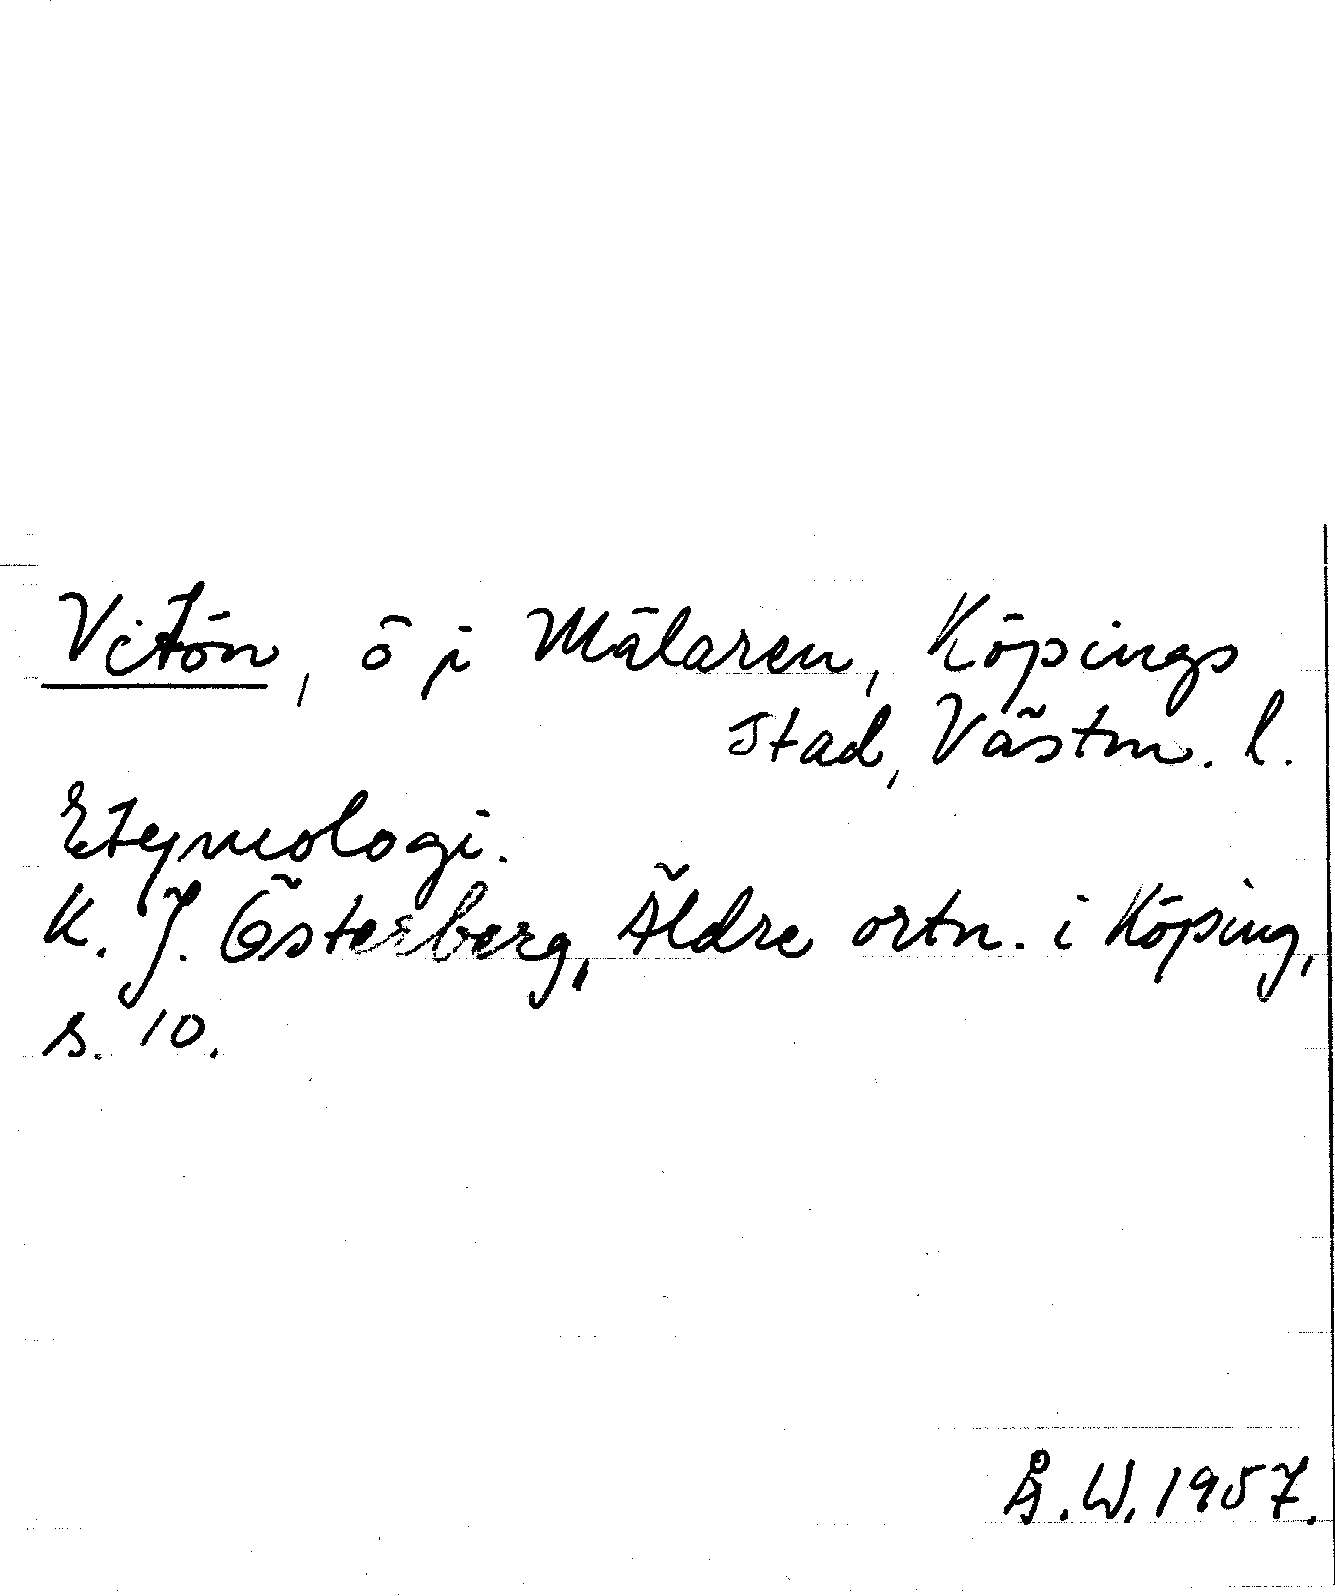 Vitön, ö i Mälaren, Köpings
stad, Västm. l.
Etymologi.
K. J. Österberg, Äldre ortn. i Köping,
s. 10.
Å. W. 1957.